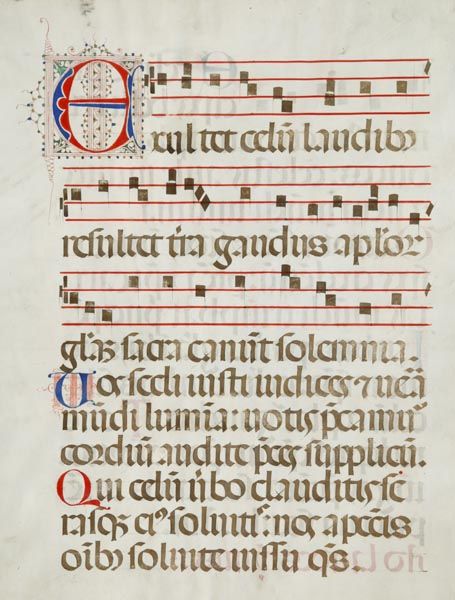 Exultet celū laudibꝰ
resultet t̄ra gaudiis apl̄oꝝ
gl̄iā sacra canūt solemnia.
Vos secli iusti iudices ⁊ uera
mūdi lumīa: uotis p̄camurˀ
cordiū audite p̄ces supplicū.
Qui celū ūbo clauditis se
rasqꝫ eiꝰ soluitis: nos a pctīs
oībꝰ soluite iussu q̄s.